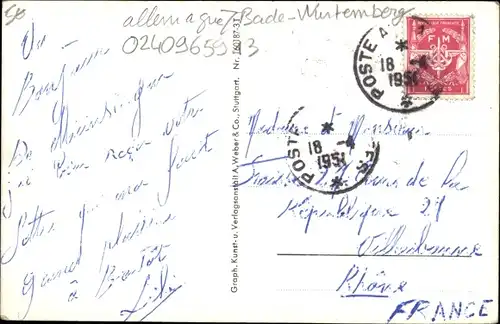 allemagne / Bade-Wurtemberg
0240965953
Un
Bonjour
De Münsingen
j'ai bien reçu votre
lettre qui m'a fait
grand plaisir
à Bientôt
Lili
Graph. Kunst- u. Verlagsanstalt A. Weber & Co., Stuttgart. Nr. 16087-31
POSTE A
18 -4
1951
POSTE
18 -4
1951
FM
Madame et Monsieur
Cours de la
République 21
Villeurbanne
Rhône
FRANCE